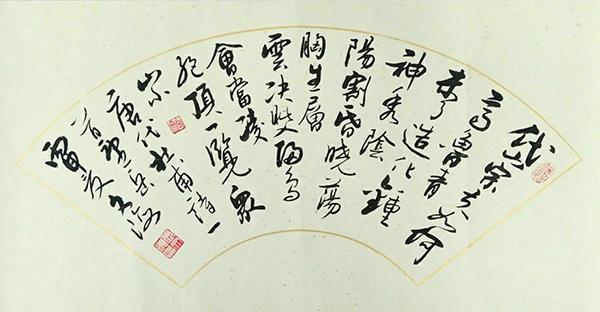 岱宗夫如何
齊魯青
未了造化鍾
神秀陰
陽割昏曉蕩
胸生層
雲決眥歸鳥
會當凌
絕頂一覽眾
山
唐代杜甫詩一
首望岳